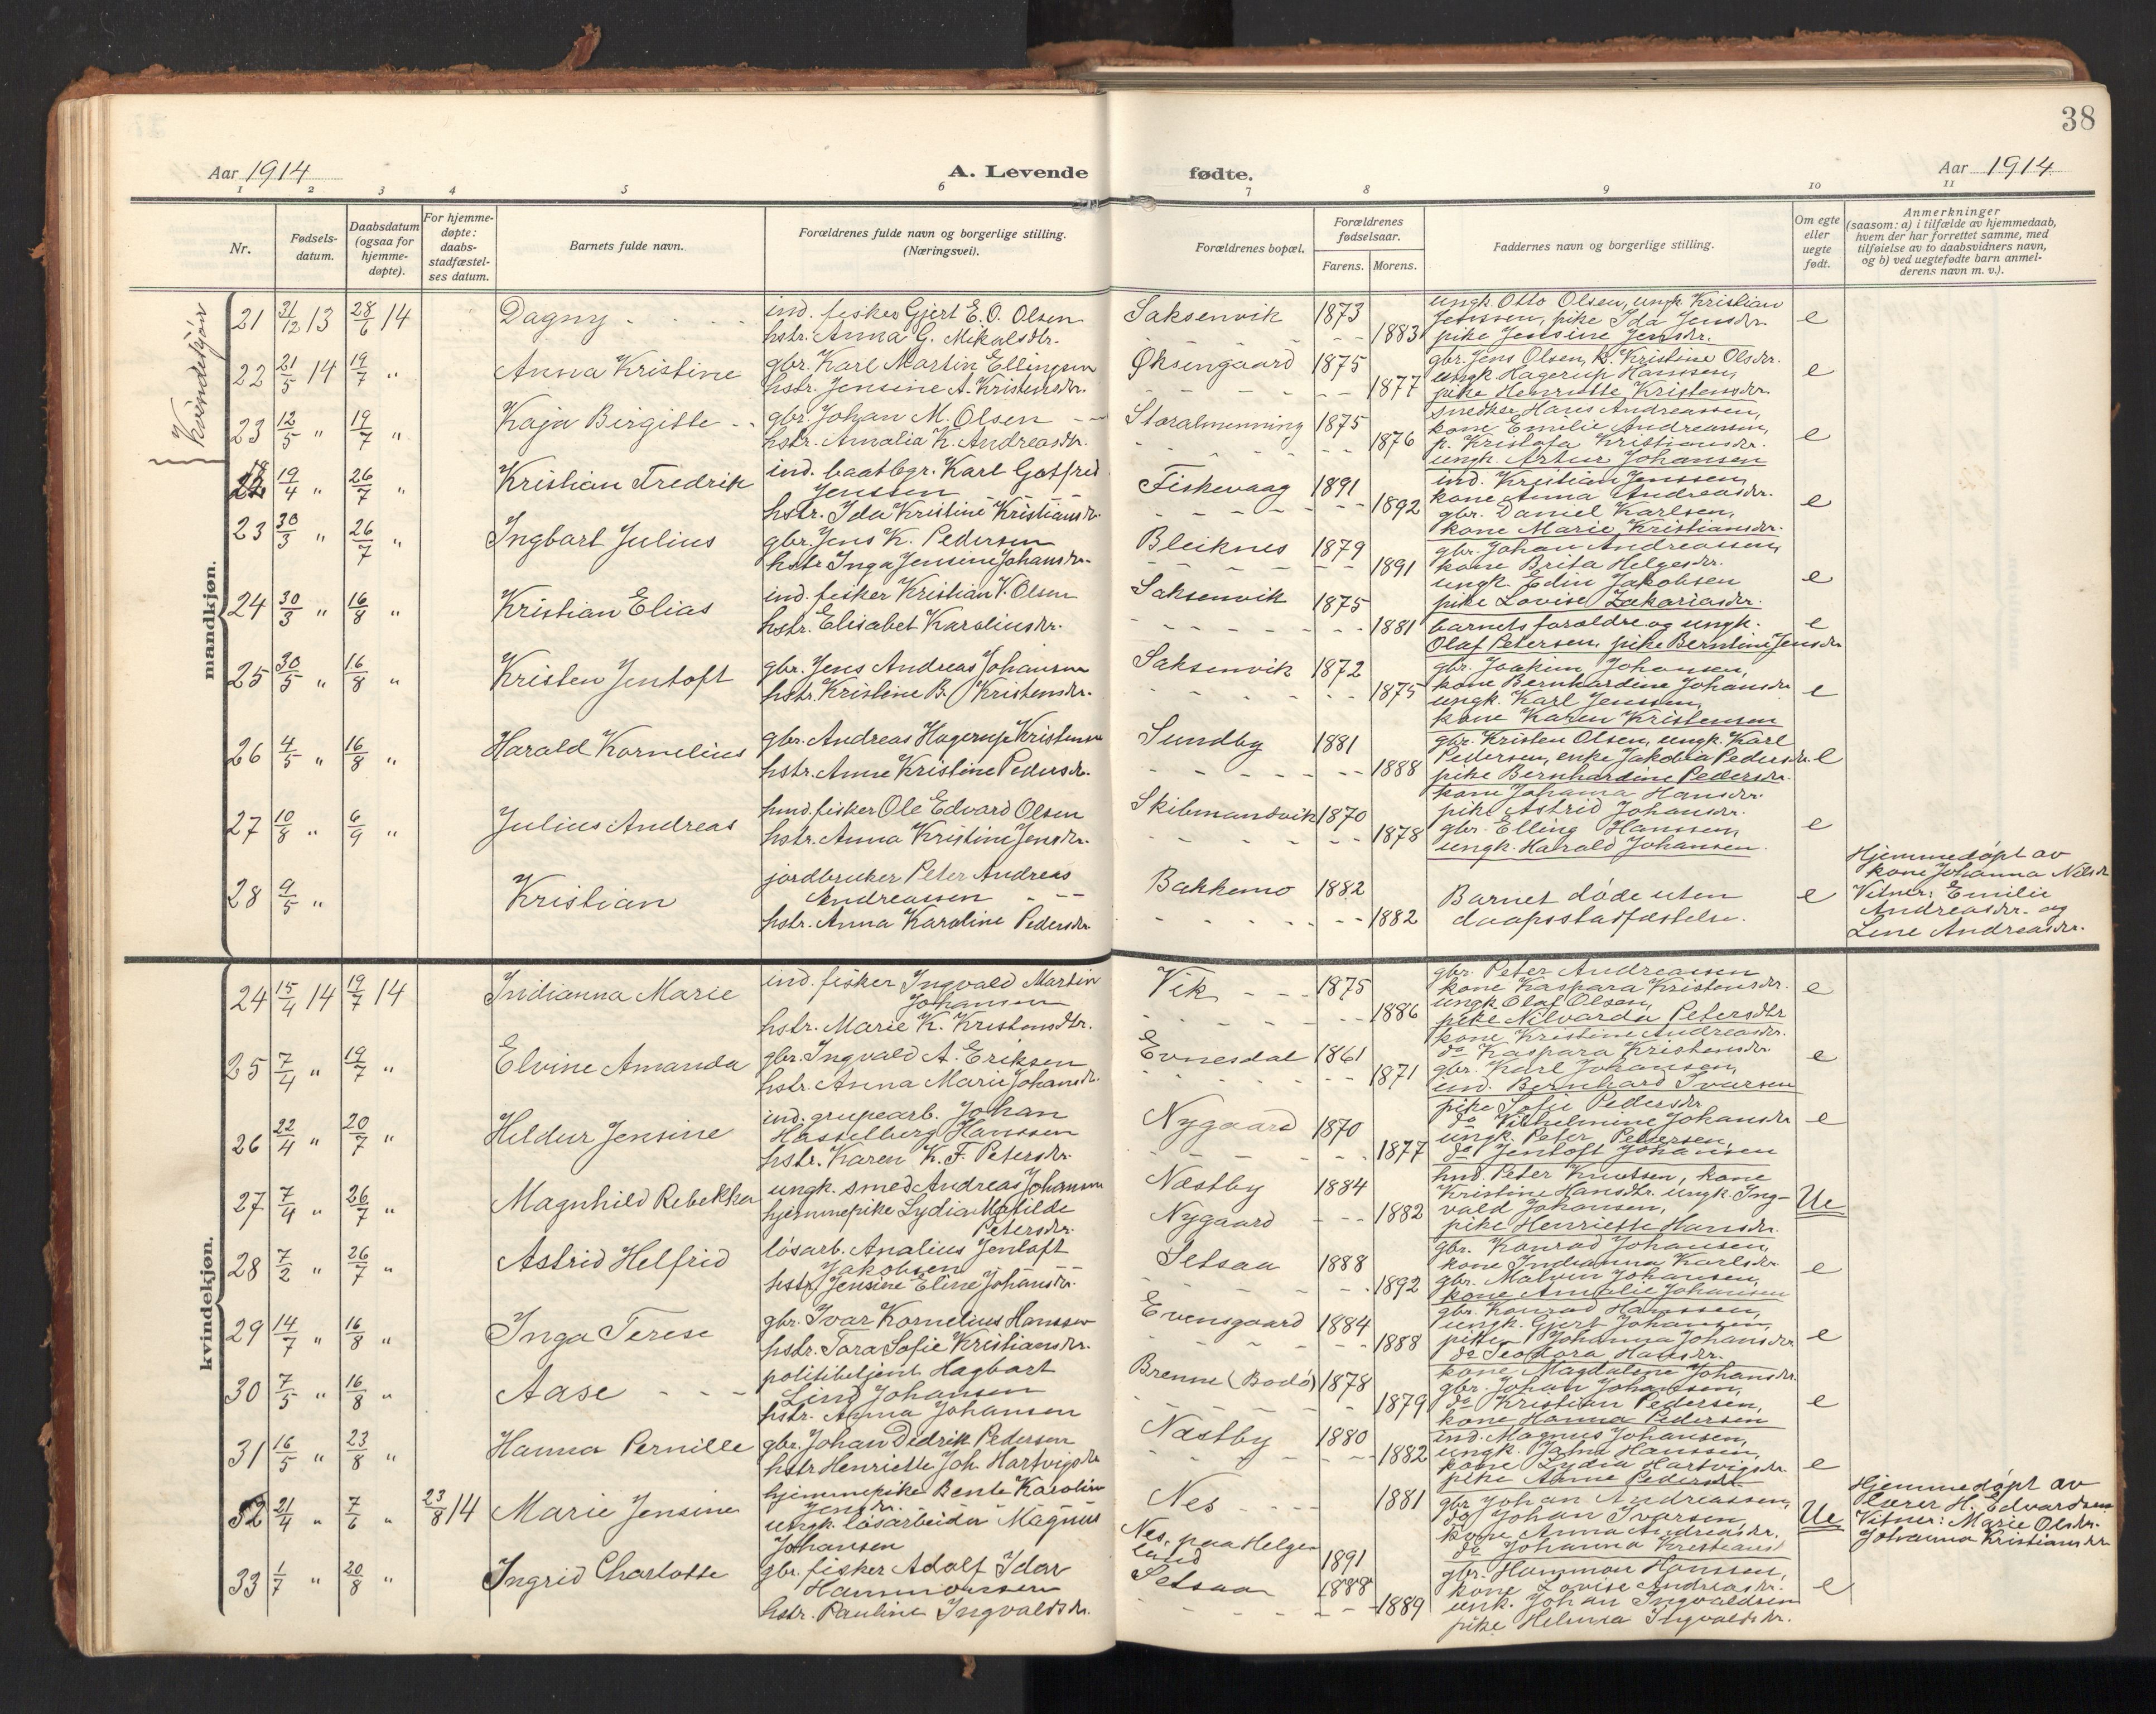 38
Aar 1914
A. Levende
fødte.
Aar 1914
1 2 3 4 5 6 7 8 9 10 11
Nr.
Fødsels-
datum.
Daabsdatum
(ogsaa for
hjemme-
døpte).
For hjemme-
døpte:
daabs-
stadfæstel-
ses datum.
Barnets fulde navn.
Forældrenes fulde navn og borgerlige stilling.
(Næringsvei).
Forældrenes bopæl.
Forældrenes
fødselsaar.
Farens. Morens.
Faddernes navn og borgerlige stilling.
Om egte
eller
uegte
født.
Anmerkninger
(saasom: a) i tilfælde av hjemmedaab,
hvem der har forrettet samme, med
tilføielse av to daabsvidners navn,
og b) ved uegtefødte barn anmel-
derens navn m. v.).
Kvindekjøn
21 31/12 13 28/6 14 Dagny
ind. fisker Gjert E. O. Olsen
hstr. Anna G. Mikalsdtr.
Saksenvik 1873
1883
ungk. Otto Olsen, ungk. Kristian
Jenssen, pike Ida Jensdr.
pike Jensine Jensdr.
e
22 21/5 14 19/7 " Anna Kristine
gbr. Karl Martin Ellingsen
hstr. Jensine A. Kristensdr.
Øksengaard 1875
1877
gbr. Jens Olsen, k. Kristine Olsdr.
ungk Hagerup Hanssen,
pike Henriette Kristensdr.
e
23 12/5 " 19/7 " Kaja Birgitte
gbr. Johan M. Olsen
hstr. Amalia K. Andreasdtr.
Storalmenning 1875
1876
snedker Hans Andreassen,
kone Emelie Andreassen,
p. Kristofa Kristiansdr.
ungk. Artur Johansen
e
mandkjøn.
18
22 19/4 " 26/7 " Kristian Fredrik
ind. baatbgr. Karl Gotfred
Jenssen
hstr. Ida Kristine Kristiansdr.
Fiskevaag 1891
1892
ind. Kristian Jenssen,
kone Anna Andreasdr.
gbr. Daniel Karlsen,
kone Marie Kristiansdr.
e
23 30/3 " 26/7 " Ingbart Julius
gbr. Jens K. Pedersen
hstr. Inga Jensine Johansdr.
Bleiknes 1879
1891
gbr. Johan Andreassen,
kone Brita Helgesdr.
ungk. Edin Jakobsen
pike Lovise Zakariasdr.
e
24 30/3 " 16/8 " Kristian Elias
ind. fisker Kristian V. Olsen
hstr. Elisabet Karoliusdr.
Saksenvik 1875
1881
barnets forældre og ungk.
Olaf Petersen, pike Berntine Jensdr
e
25 30/5 " 16/8 " Kristen Jentoft
gbr. Jens Andreas Johansen
hstr. Kristine B. Kristensdr.
Saksenvik 1872
1875
gbr. Joakim Johansen,
kone Bernhardine Johansdr
ungk. Karl Jenssen,
kone Karen Kristensen
e
26 4/5 " 16/8 " Harald Kornelius
gbr. Andreas Hagerup Kristensen
hstr. Anne Kristine Pedersdr.
Sundby 1881
1888
gbr. Kristen Olsen, ungk. Karl
Pedersen, enke Jakobia Pedersdr.
pike Bernhardine Pedersdr.
e
27 10/8 " 6/9 " Julius Andreas
hmd. fisker Ole Edvard Olsen
hstr. Anna Kristine Jensdr.
Skibmandvik 1870
1878
kone Johanna Hansdr.
pike Astrid Johansdr.
gbr. Elling Hanssen,
ungk. Harald Johansen.
e
28 9/5 " Kristian
jordbruker Peter Andreas
Andreassen
hstr. Anna Karoline Pedersdr
Bakkemo 1882
1882
Barnet døde uten
daapsstadfestelse.
e
Hjemmedøpt av
kone Johanna Nilsdr
Vitner: Emilie
Andreasdr. og
Line Andreasdr.
kvindekjøn.
24 15/4 14 19/7 14 Indianna Marie
ind. fisker Ingvald Martin
Johansen
hstr. Marie K. Kristensdtr.
Vik 1875
1886
gbr. Peter Andreassen
kone Kaspara Kristensdr.
ungk Olaf Olsen,
pike Nilvarda Petersdtr
e
25 7/4 " 19/7 " Elvine Amanda
gbr. Ingvald A. Eriksen
hstr. Anna Marie Johansdr.
Evnesdal 1861
1871
kone Kristine Andreasdr.
do Kaspara Kristensdr
gbr. Karl Johansen,
ind. Bernhard Ivarsen
e
26 22/4 " 20/7 " Heldur Jensine
ind. grupearb. Johan
Hasselberg Hanssen
hstr. Karen K. F. Petersdr.
Nygaard 1870
1877
pike Sofie Pedersdr
do Vilhelmine Johansdr
ungk. Peter Pedersen,
do Jentoft Johansen
e
27 7/4 " 26/7 " Magnhild Rebekka
ungk. smed Andreas Johansen
hjemmepike Lydia Matilde
Petersdr.
Næstby 1884
Nygaard 1882
hmd. Peter Knutsen, kone
Kristine Hansdtr. ungk. Ing-
vald Johansen,
pike Henriette Hansdr.
Ue
28 7/2 " 26/7 " Astrid Helfrid
løsarb. Analius Jentoft
Jakobsen
hstr Jensine Eline Johansdr.
Setsaa 1888
1892
gbr. Konrad Johansen,
kone Indianna Karlsdr
gbr. Malvin Johansen,
kone Amalie Johansen
e
29 14/7 " 16/8 " Inga Terese
gbr. Ivar Kornelius Hanssen
hstr. Tora Sofie Kristiansdr.
Evensgaard 1884
1888
gbr. Konrad Hanssen,
ungk. Gjert Johansen,
pike Johanna Johansdr
do Teodora Hansdr.
e
30 7/5 " 16/8 " Aase
politibetjent Hagbart
Lind Johansen
hstr. Anna Johansen
Brenne (Bodø) 1878
1879
kone Magdalene Johansdr.
gbr. Johan Johansen,
do Kristian Pedersen,
kone Hanna Pedersen
e
31 16/5 " 23/8 " Hanna Pernille
gbr. Johan Didrik Pedersen
hstr Henriette Joh. Hartvigsdr
Næstby 1880
1882
ind. Magnus Johansen,
ungk. John Hanssen,
kone Lydia Hartvigsdr.
pike Anne Pedersdr.
e
32 21/4 " 7/6 " 23/8 14 Marie Jensine
hjemmepike Bente Karoline
Jensdr.
ungk. løsarbeider Magnus
Johansen
Nes 1881
Nes, paa Helge-
land 1891
gbr Johan Andreassen,
do Johan Ivarsen,
kone Anna Andreasdr.
do Johanna Kristians
Ue
Hjemmedøpt av
lærer H. Edvardsen
Vitner: Marie Olsdr.
Johanna Kristiansdr
33 1/7 " 20/8 " Ingrid Charlotte
gbr. fisker Adolf Idar
Hammonssen
hstr. Pauline Ingvaldsdr.
Setsaa 1888
1889
gbr. Hammon Hanssen,
kone Lovise Andreasdr.
unk. Johan Ingvaldsen
pike Helmina Ingvaldsdr.
e